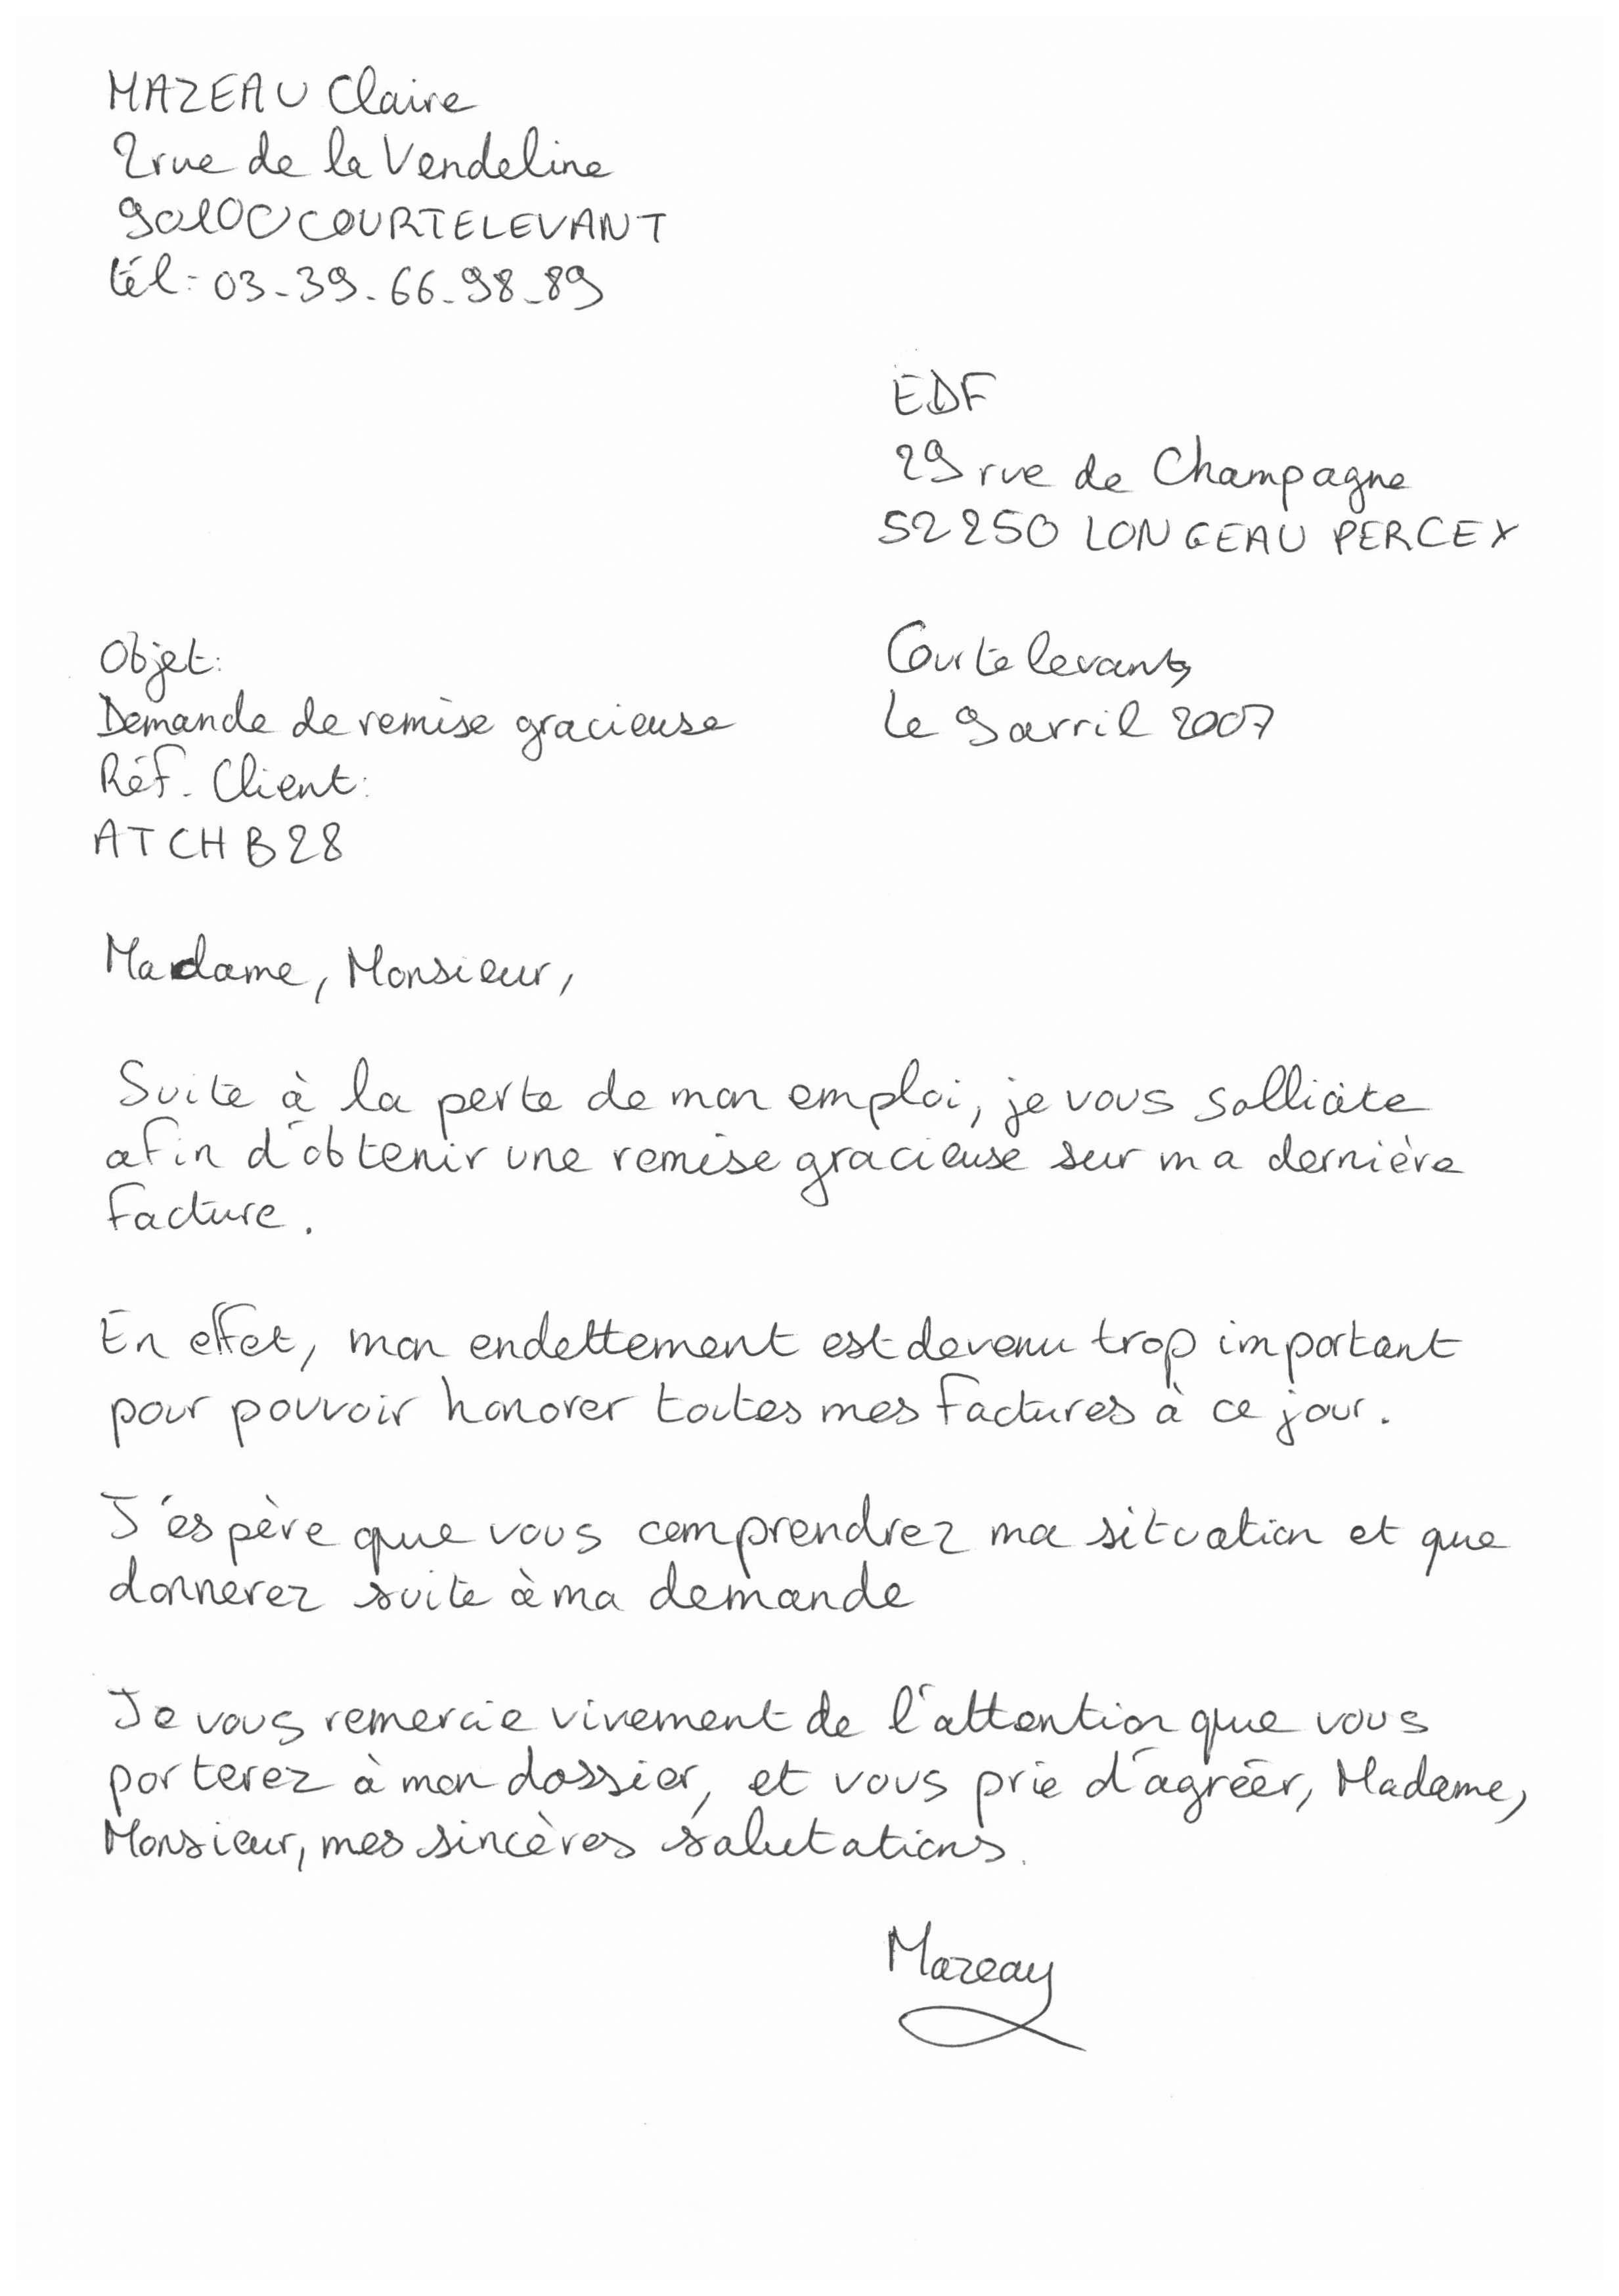 MAZEAU Claire
2 rue de la Vendeline
90100 COURTELEVANT
tél: 03-39-66-98-89
EDF
29 rue de Champagne
52250 LONGEAU PERCEY
Objet:
Demande de remise gracieuse
Réf. Client:
ATCHB28
Courtelevant,
Le 9 avril 2007
Madame, Monsieur,
Suite à la perte de mon emploi, je vous sollicite
afin d'obtenir une remise gracieuse sur ma dernière
facture.
En effet, mon endettement est devenu trop important
pour pouvoir honorer toutes mes factures à ce jour.
J'espère que vous comprendrez ma situation et que
donnerez suite à ma demande
Je vous remercie vivement de l'attention que vous
porterez à mon dossier, et vous prie d'agréer, Madame,
Monsieur, mes sincères salutations.
Mazeau